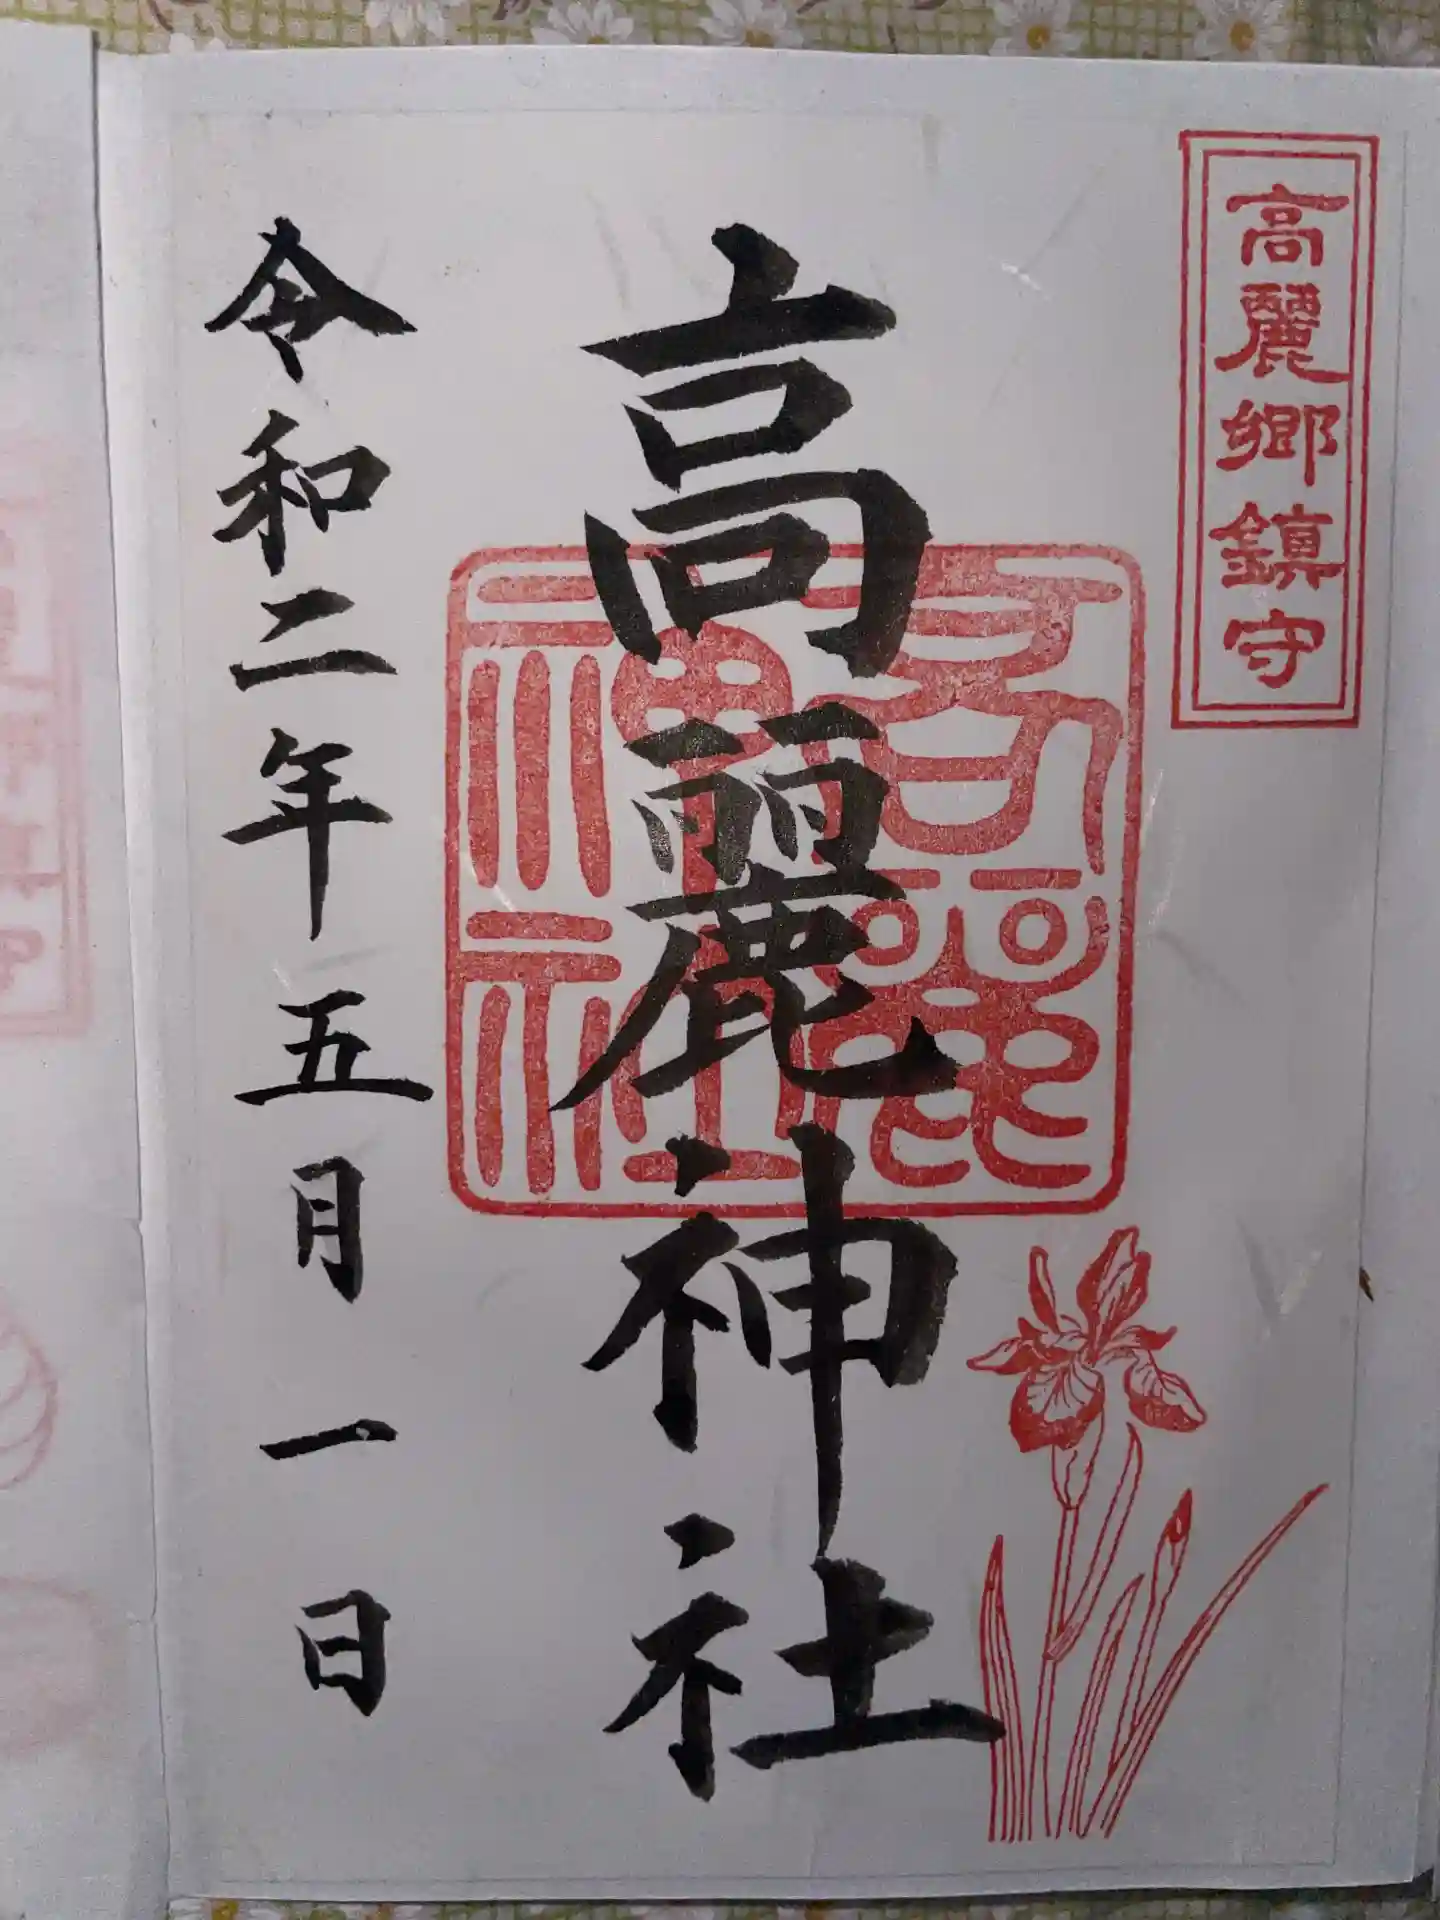 高麗郷鎮守
高麗神社
高麗神社
令和二年五月一日